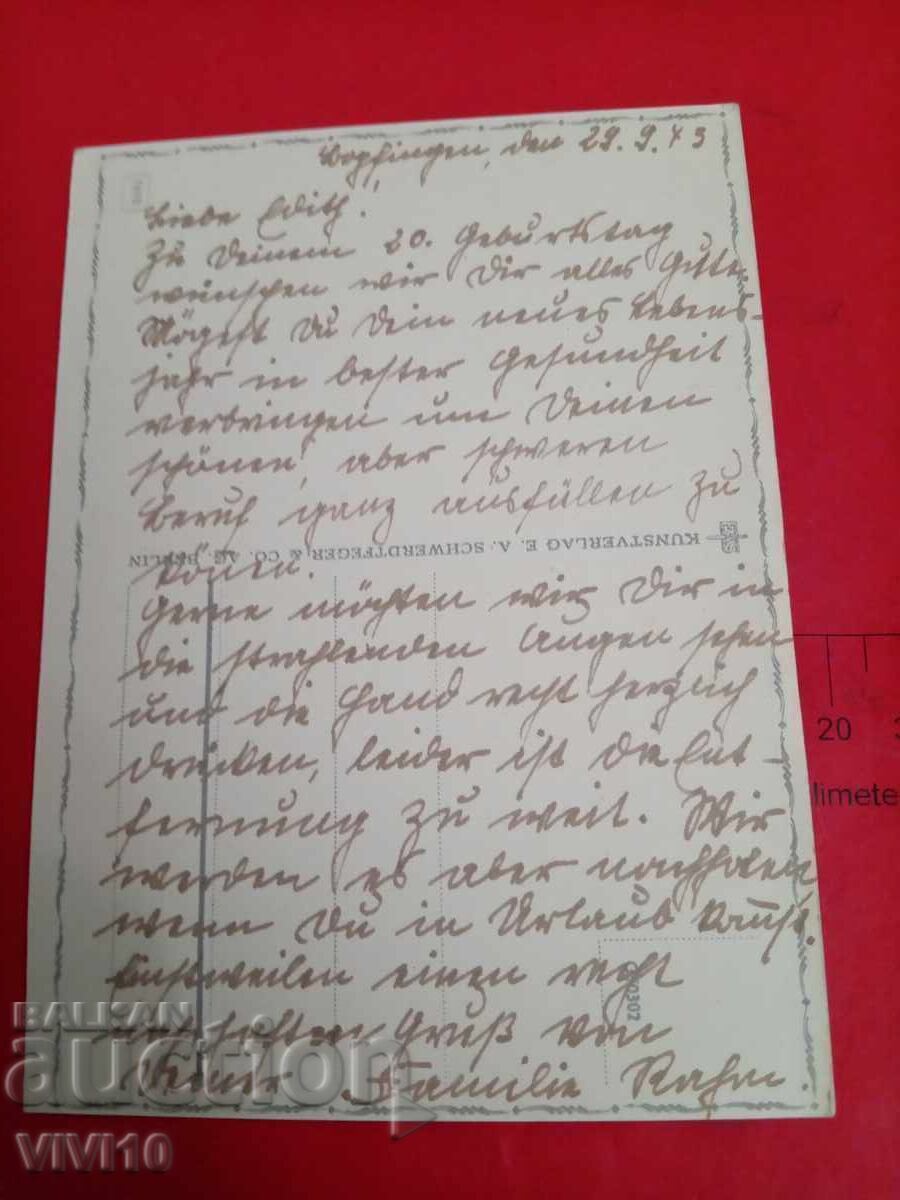 Bopfingen, den 29.9.43
Liebe Edith!
Zu Deinem 20. Geburtstag
wünschen wir Dir alles Gute.
Mögest Du Dein neues Lebens-
jahr in bester Gesundheit
verbringen um Deinen
schönen, aber schweren
Beruf ganz ausfüllen zu
könen.
KUNSTVERLAG E. A. SCHWERDTFEGER & CO. AG. BERLIN
EAS
Gerne möchten wir Dir in
die strahlenden Augen sehen
und die Hand recht herzlich
drücken, leider ist die Ent-
fernung zu weit. Wir
werden es aber nachholen
wenn Du in Urlaub komst.
Einstweilen einen recht
Gruß von
Deiner Familie Rahm.
0302
20
limete
BALKAN
auction
VIVI10